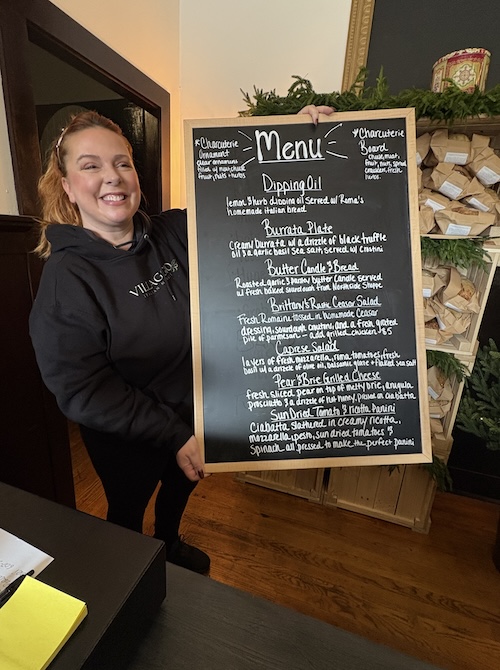 Menu
*Charcuterie
Ornament
clear ornaments
filled w/ meat, cheese
fruit, nuts & herbs
*Charcuterie
Board
cheese, meat,
fruit, nuts, spread
crackers, fresh
herbs.
Dipping Oil
lemon & herb dipping oil served w/ Roma's
homemade italian bread
Burrata Plate
Creamy burrata w/ a drizzle of black truffle
oil & a garlic basil sea salt, served w/ crostini
Butter Candle & Bread
Roasted garlic & parsley butter candle served
w/ fresh baked sourdough from Northside Shoppe
Brittany's Rustic Ceasar Salad
Fresh Romaine tossed in homemade Ceasar
dressing, sourdough croutons, and a fresh grated
of parmesean - add grilled chicken $5
Caprese Salad
layers of fresh mozzarella, roma tomatoes, fresh
basil w/ a drizzle of olive oil, balsamic glaze & flaked sea salt
Pear & Brie Grilled Cheese
fresh sliced pear on top of melty brie, arugula
prosciutto & a drizzle of hot honey, pressed on ciabatta
Sun Dried Tomato & ricotta Panini
Ciabatta slathered in creamy ricotta,
mozzarella, pesto, sun dried tomatoes &
Spinach all pressed to make the perfect panini